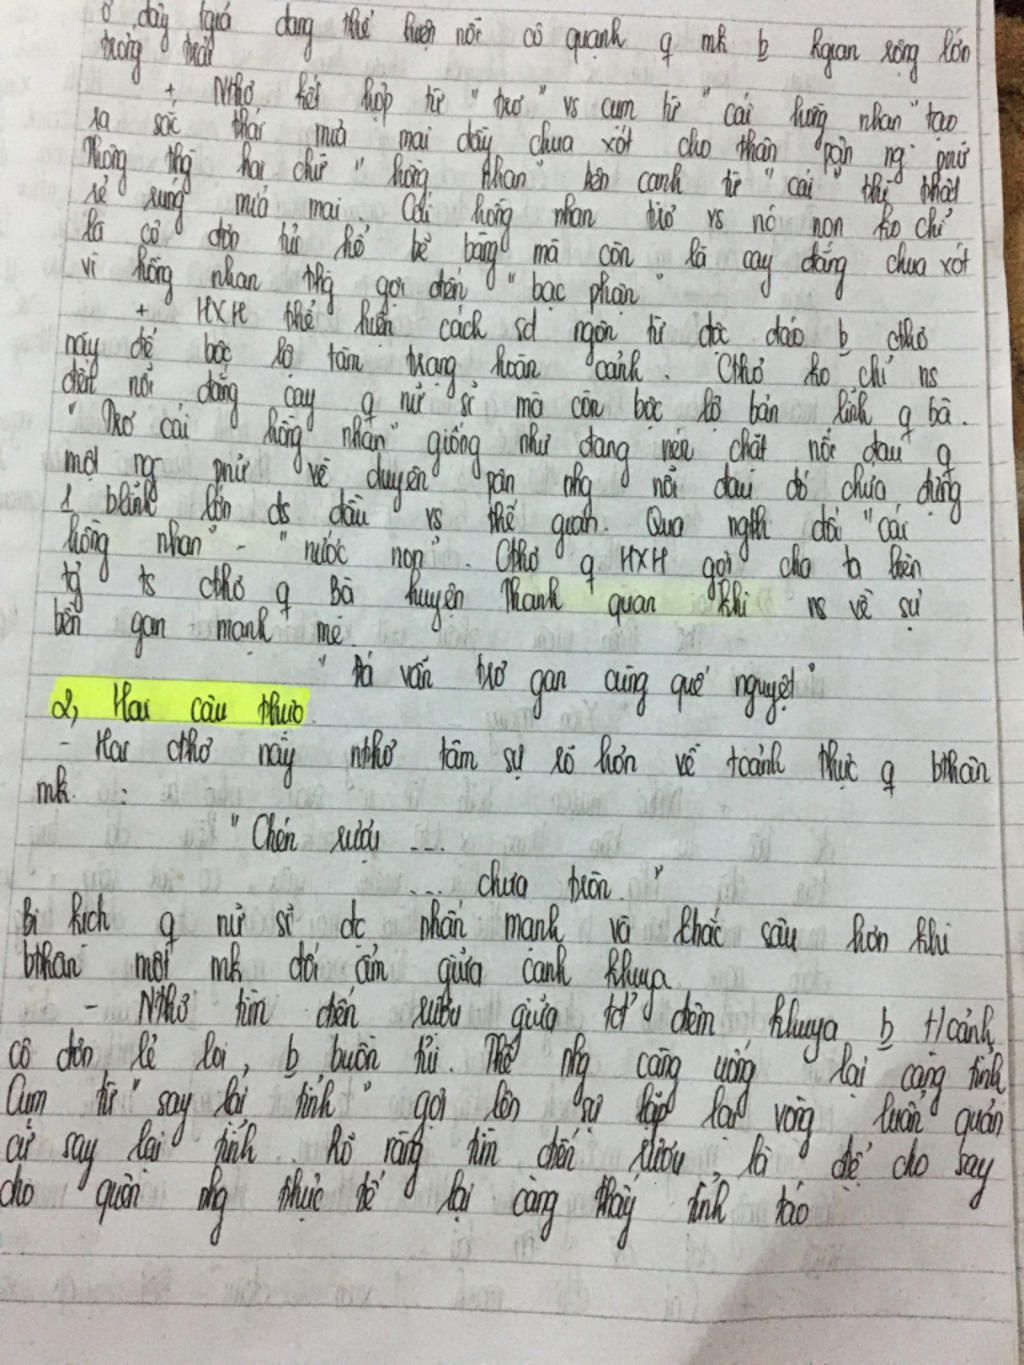 ở đây tgiả đang thể hiện nỗi cô quạnh q mk b kgian rộng lớn
trống trải
+ Nthơ kết hợp từ " trơ " vs cụm từ " cái hồng nhan " tạo
ra sắc thái mỉa mai đầy chua xót cho thân pận ng pnữ
Thông thg hai chữ " hồng nhan " bên cạnh từ " cái " thì thật
rẻ rúng mỉa mai. Cái hồng nhan trơ vs nó non ko chỉ
là cô đơn tủi hổ bẽ bàng mà còn là cay đắng chua xót
vì hồng nhan thg gợi đến " bạc phận "
+ HXH thể hiện cách sd ngôn từ độc đáo b cthơ
này để bộc lộ tâm trạng hoàn cảnh. Cthơ ko chỉ ns
đến nỗi đắng cay q nữ sĩ mà còn bộc lộ bản lĩnh q bà.
" Trơ cái hồng nhan " giống như đang nén chặt nỗi đau q
một ng pnữ về duyên pận nhg nỗi đau đó chứa đựng
1 blĩnh lớn đs đầu vs thế gian. Qua nghth đối "cái
hồng nhan" - "nước non". Cthơ q HXH gợi cho ta liên
tg ts cthơ q Bà huyện Thanh quan khi ns về sự
bền gan mạnh mẽ.
" Đá vẫn trơ gan cùng quế nguyệt "
2, Hai câu thực
- Hai cthơ này nthơ tâm sự rõ hơn về tcảnh thực q bthân
mk :
" Chén rượu ...
... chưa tròn. "
Bi kịch q nữ sĩ đc nhấn mạnh và khắc sâu hơn khi
bthân một mk đối ẩm giữa canh khuya
- Nthơ tìm đến rượu giữa đêm khuya b H/cảnh
cô đơn, lẻ loi, b buồn tủi. Thế nhg càng uống lại càng tỉnh
Cụm từ " say lại tỉnh " gợi lên sự lặp lại vòng luẩn quẩn
cứ say lại tỉnh. Rõ ràng tìm đến rượu là để cho say
cho quên nhg thực tế lại càng thấy tỉnh táo